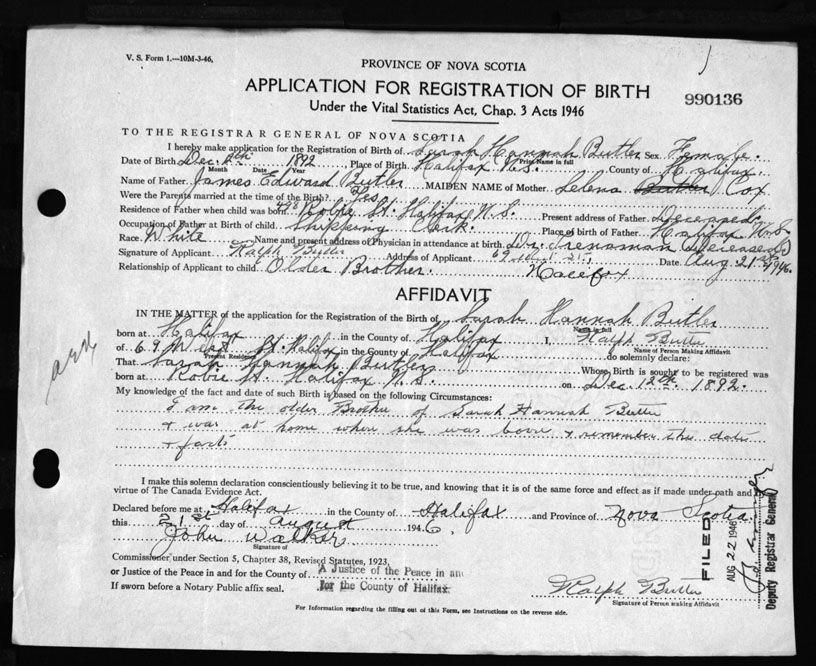 V. S. Form 1.—10M-3-46,
PROVINCE OF NOVA SCOTIA
APPLICATION FOR REGISTRATION OF BIRTH
990136
Under the Vital Statistics Act, Chap. 3 Acts 1946
TO THE REGISTRAR GENERAL OF NOVA SCOTIA
I hereby make application for the Registration of Birth of Sarah Hannah Butler Sex Female.
Print Name in full
Date of Birth Dec. 12th 1892, Place of Birth Halifax N.S. County of Halifax.
Month Date Year
Name of Father James Edward Butler MAIDEN NAME of Mother Selena Butler Cox
Were the Parents married at the time of the Birth? Yes
Residence of Father when child was born 498 Robie St. Halifax N.S. Present address of Father Deceased
Occupation of Father at Birth of child Shipping Clerk. Place of Birth Halifax N.S.
Race White Name and present address of Physician in attendance at birth Dr. Trenaman (deceased)
Signature of Applicant Ralph Butler Address of Applicant 69 St., Date Aug. 21st 1946.
Relationship of Applicant to child Older Brother. Halifax
AFFIDAVIT
IN THE MATTER of the application for the Registration of Birth of Sarah Hannah Butler
Name in full
born at Halifax in the County of Halifax I, Ralph Butler
Name of Person Making Affidavit
of 69 St. Halifax in the County of Halifax do solemnly declare:
Present Residence
That Sarah Hannah Butler Whose Birth is sought to be registered was
born at Robie St. Halifax N.S. on Dec 12th 1892.
My knowledge of the fact and date of such Birth is based on the following Circumstances:
I am the older Brother of Sarah Hannah Butler
+ was at home when she was born + remember the date
+ facts
I make this solemn declaration conscientiously believing it to be true, and knowing that it is of the same force and effect as if made under oath and by
virtue of The Canada Evidence Act.
Declared before me at Halifax in the County of Halifax and Province of Nova Scotia
this 21st day of August 1946.
John Walker
Signature of
Commissioner under Section 5, Chapter 38, Revised Statutes, 1923,
or Justice of the Peace in and for the County of A Justice of the Peace in an
for the County of Halifax
If sworn before a Notary Public affix seal.
Ralph Butler
Signature of Person Making Affidavit
For Information regarding the filling out of this Form, see Instructions on the reverse side.
FILED
AUG 22 1946
Deputy Registrar General